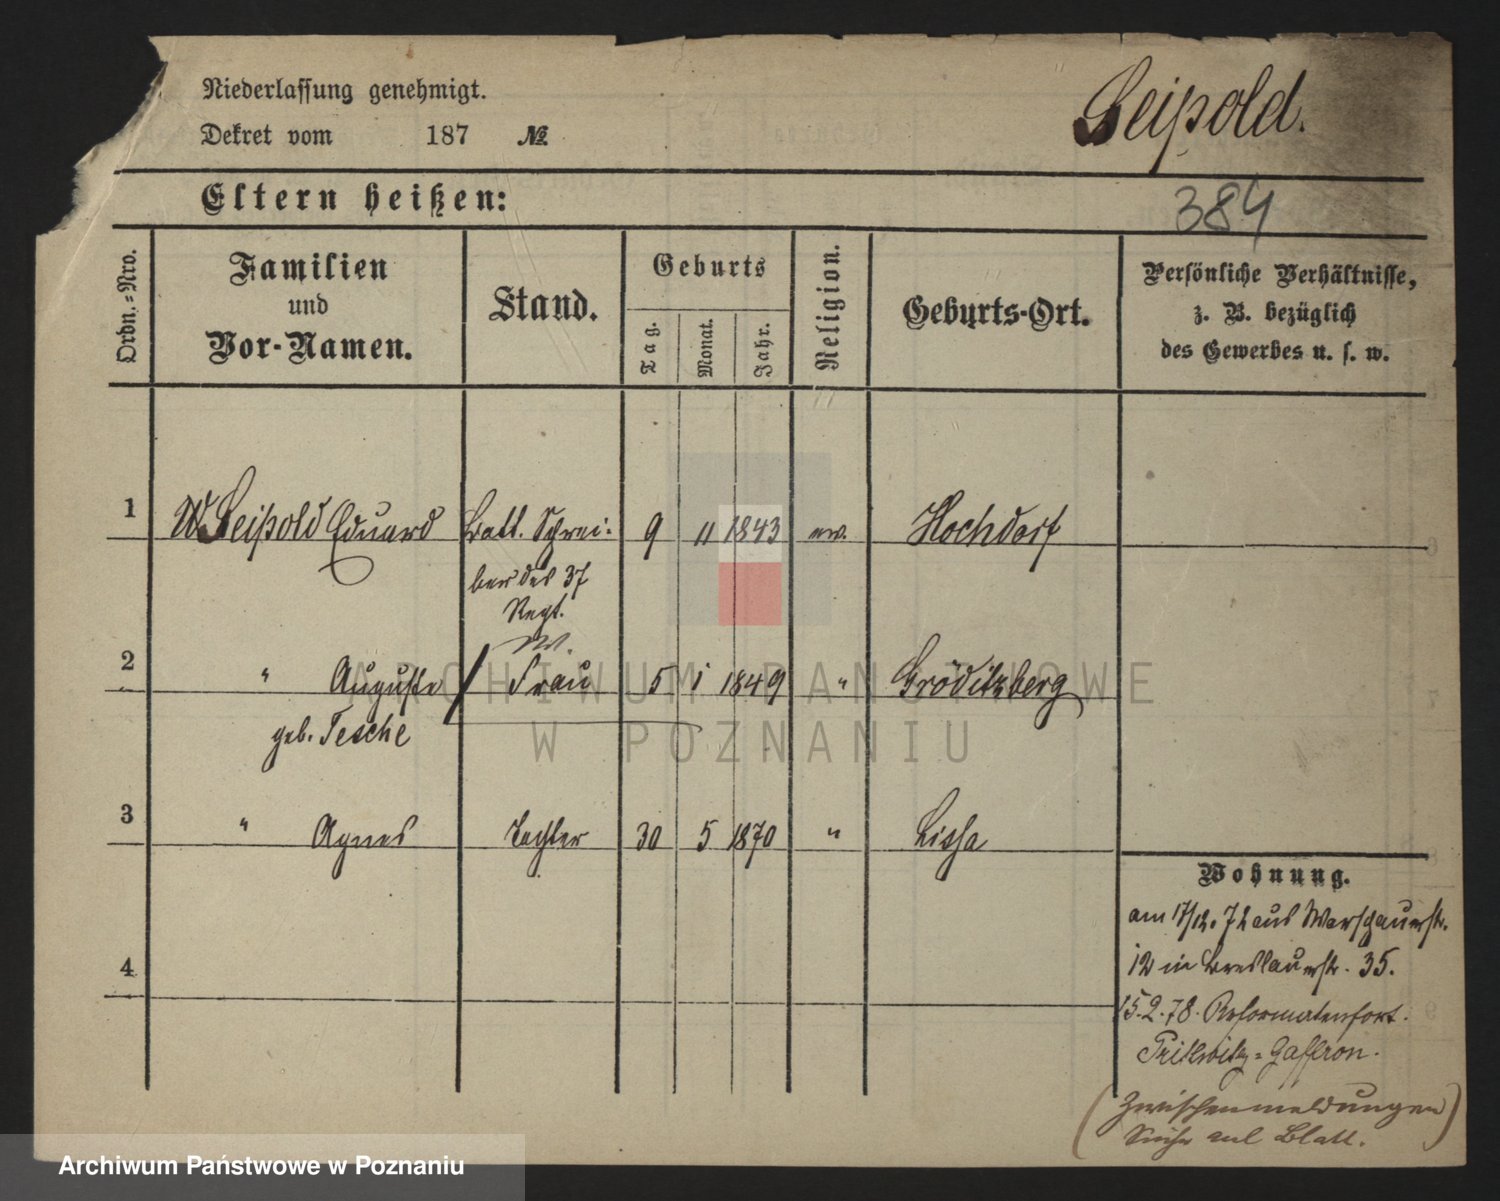 Niederlassung genehmigt.
Dekret vom 187 №
Leipold.
384
Eltern heißen:
Ordn.-Nro.
Familien
und
Vor-Namen.
Stand.
Geburts
Tag.
Monat.
Jahr.
Religion.
Geburts-Ort.
Persönliche Verhältnisse,
z. B. bezüglich
des Gewerbes u. s. w.
1 Leipold Eduard Batl. Schrei- 9 11 1843 ev. Hochdorf
ber des 37
Regt.
2 " Auguste Frau 5 1 1849 " Gröditzberg
geb. Tesche
3 " Agnes Tochter 30 5 1870 " Lissa
4
Wohnung.
am 17/12. 72 aus Warschauerstr.
12 in Breslauerstr. 35.
15.2.78. Reformatenfort.
Prittwitz-Gaffron.
(Zwischenmeldungen
Siehe auf Blatt.)
ARCHIWUM PAŃSTWOWE
W POZNANIU
Archiwum Państwowe w Poznaniu